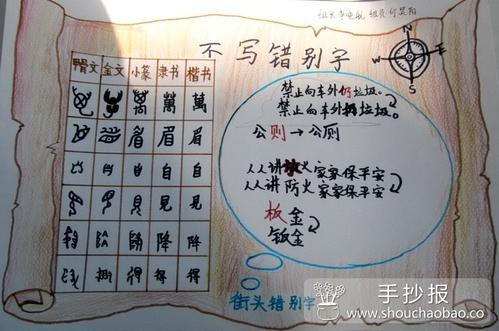 组长 组员
不写错别字
N
W E
S
甲骨文 金文 小篆 隶书 楷书
萬 萬
眉 眉
自 自
見 見
降 降
得 得
禁止向车外仍垃圾。
禁止向车外扔垃圾。
公则→公厕
人人讲放火家家保平安
人人讲防火家家保平安
板金
钣金
街头错别字
手抄报
www.shouchaobao.co